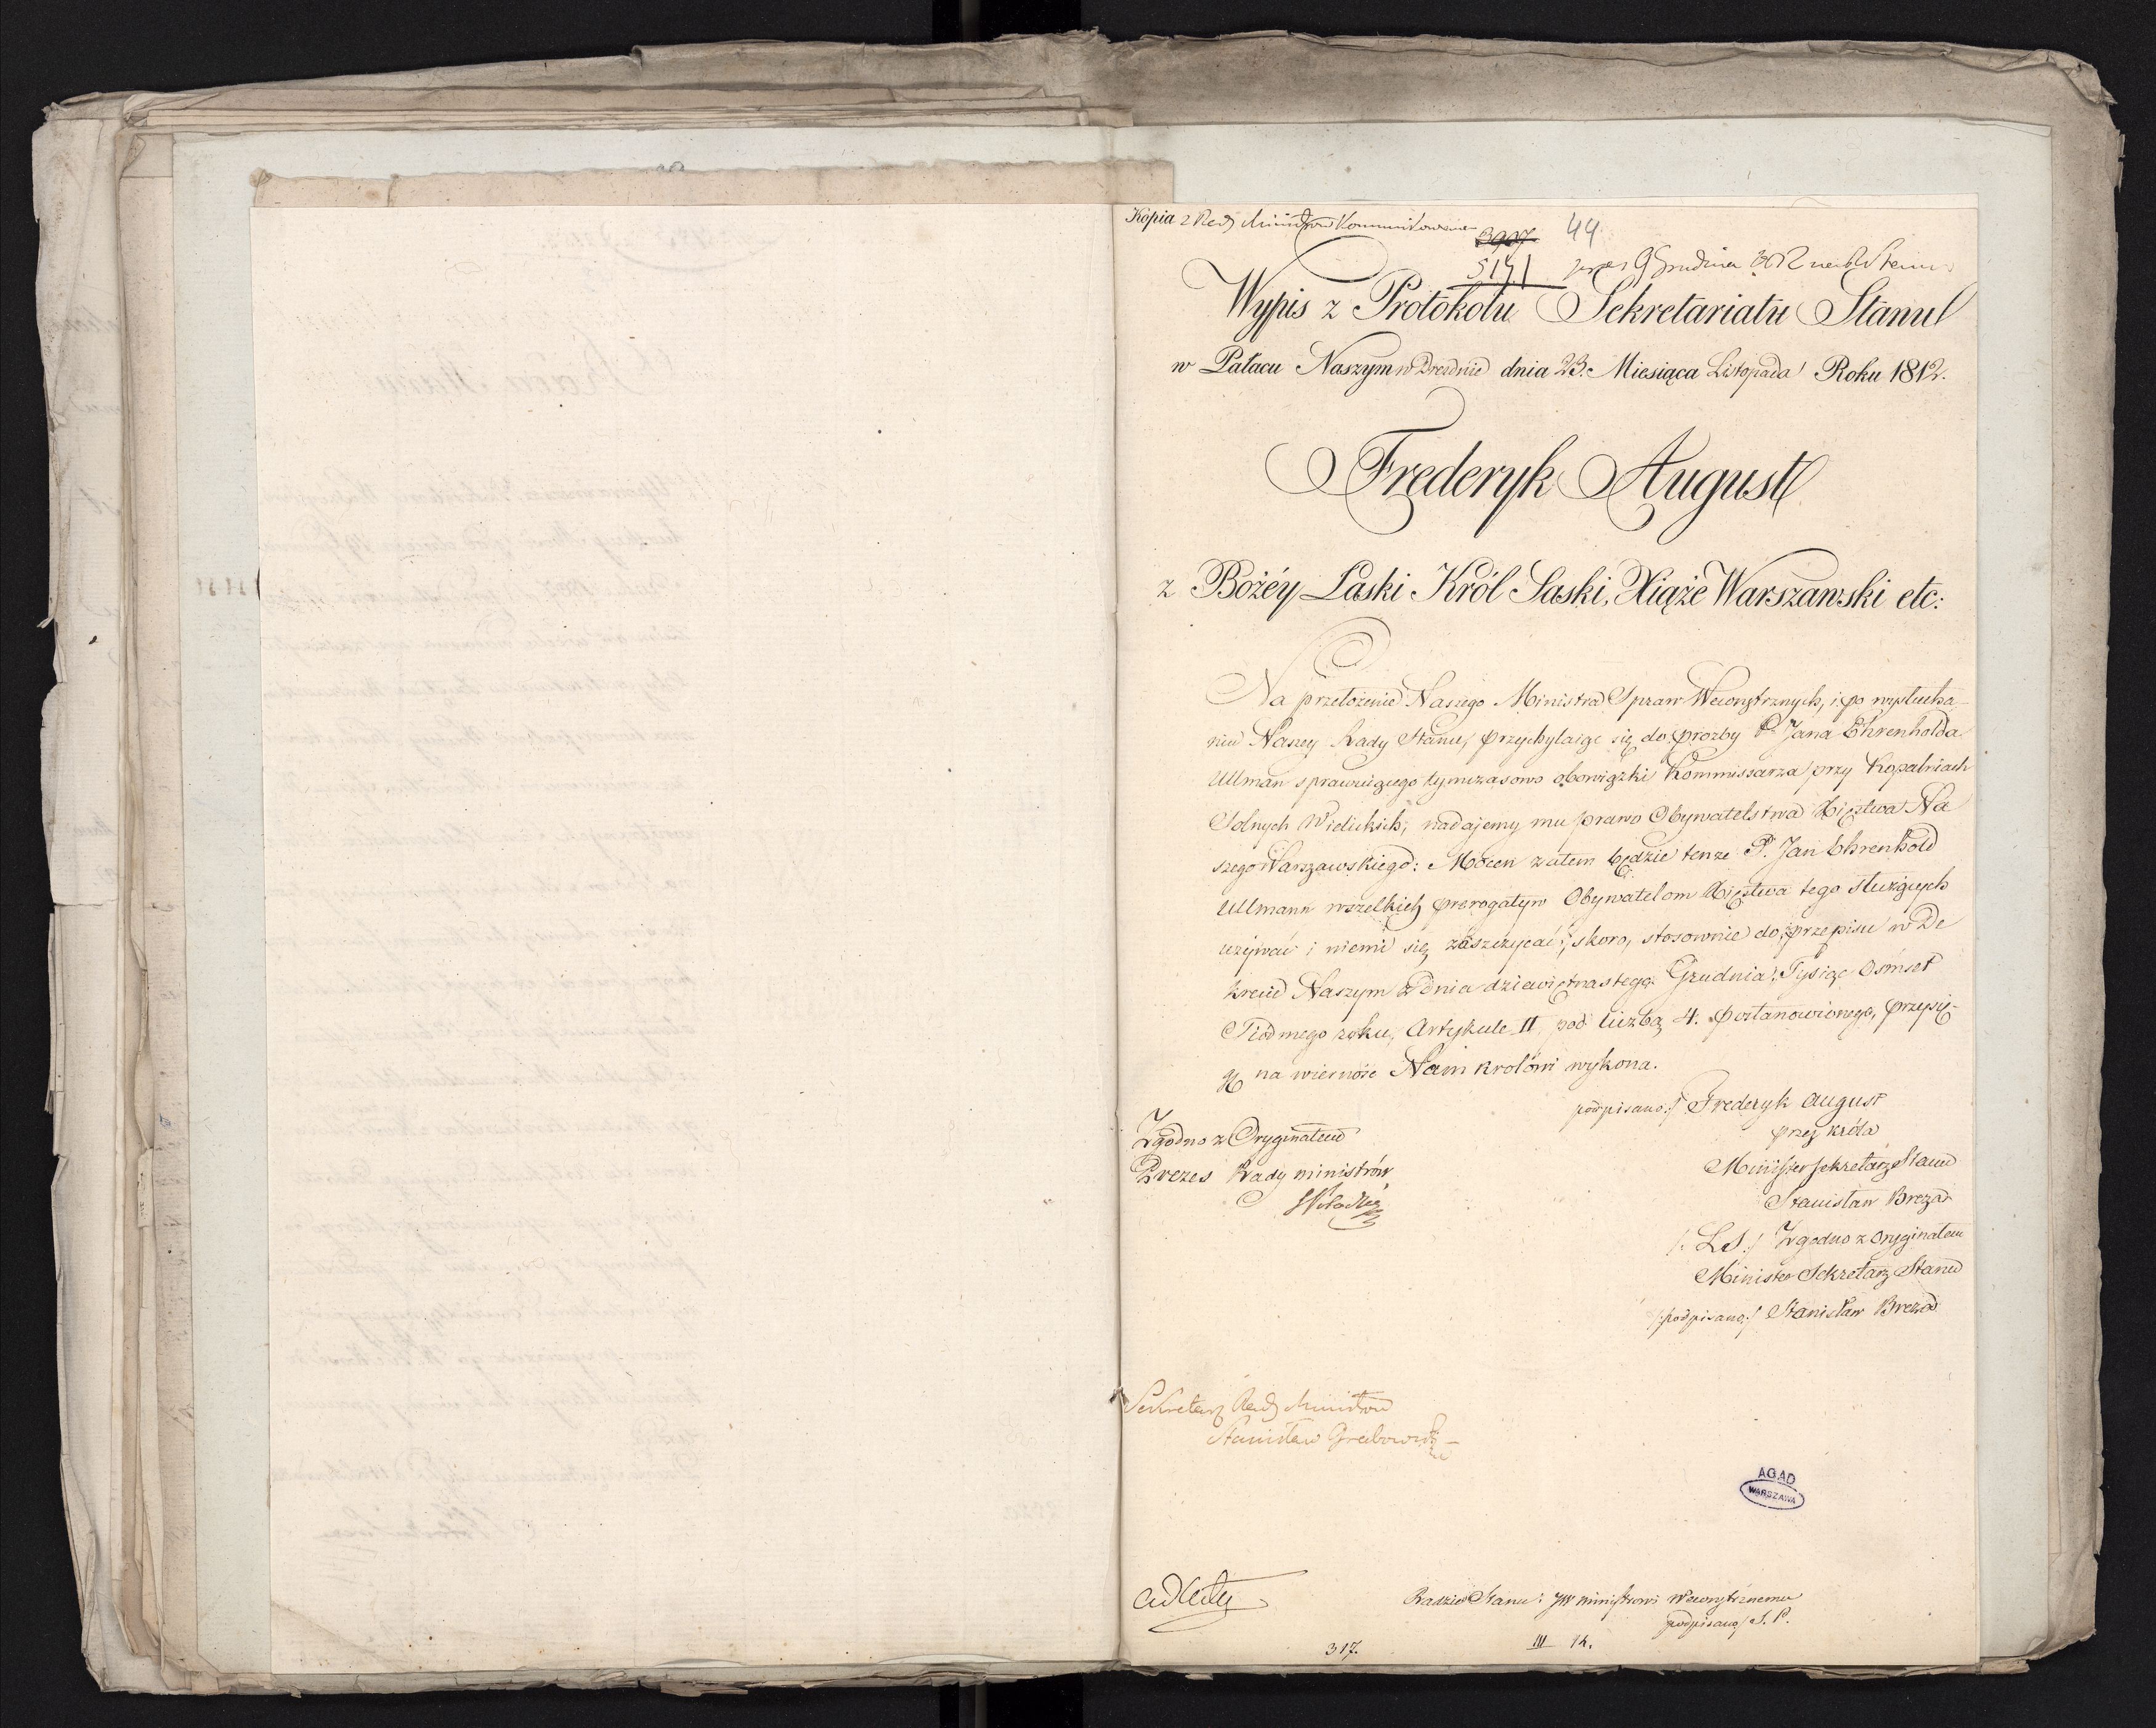 Kopia z Rady Ministrów Kommunikowana
3907 44
5141 9 Grudnia
Wypis z Protokołu Sekretariatu Stanu
w Pałacu Naszym w Dreźnie dnia 23. Miesiąca Listopada Roku 1812.
Frederyk August
z Bożéy Łaski Król Saski, Xiąże Warszawski etc:
Na przełożenie Naszego Ministra Spraw Wewnętrznych, i po wysłucha-
niu Naszey Rady Stanu, przychylaiąc się do proźby P. Jana Ehrenholda
Ullman sprawuiącego tymczasowo obowiązki Kommissarza przy Kopalniach
Solnych Wielickich, nadajemy mu prawo Obywatelstwa Xięstwa Na
szego Warszawskiego: Mocen zatem będzie tenze P. Jan Ehrenhold
Ullmann wszelkich prerogatyw Obywatelom Xięstwa tego służących
używać i niemi się zaszczycać, skoro, stosownie do przepisu w De
krecie Naszym z dnia dziewiętnastego Grudnia Tysiąc Osmset
Siodmego roku, Artykule II pod liczbą 4. postanowionego, przysię-
gę na wierność Nam Krolowi wykona.
podpisano:/ Frederyk August
przez króla
Minister Sekretarz Stanu
Stanisław Breza
/: L.S :/ Zgodno z Oryginałem
Minister Sekretarz Stanu
/:podpisano:/ Stanisław Breza
Zgodno z Oryginałem
Prezes Rady Ministrów
Sekretarz Rady Ministrów
Stanisław Grabowski
AGAD
WARSZAWA
Radzie Stanu: JW Ministrowi Wewnętrznemu
podpisano/ S. P.
317. III 14.